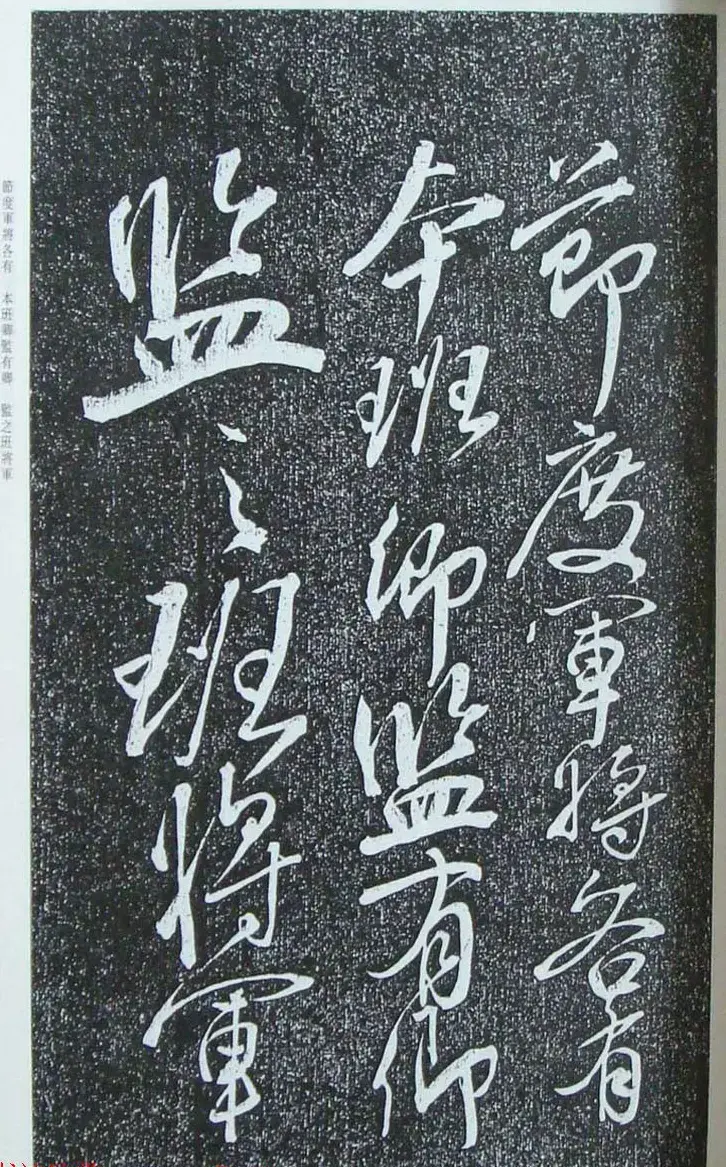 節度軍將各有
本班卿監有卿
監之班將軍
節度軍將各有 本班卿監有卿 監之班將軍